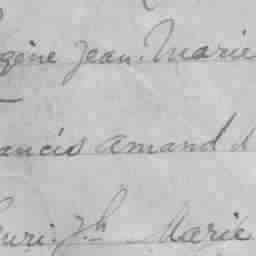 gène Jean Marie
ancis Amand
enri Jh Marie